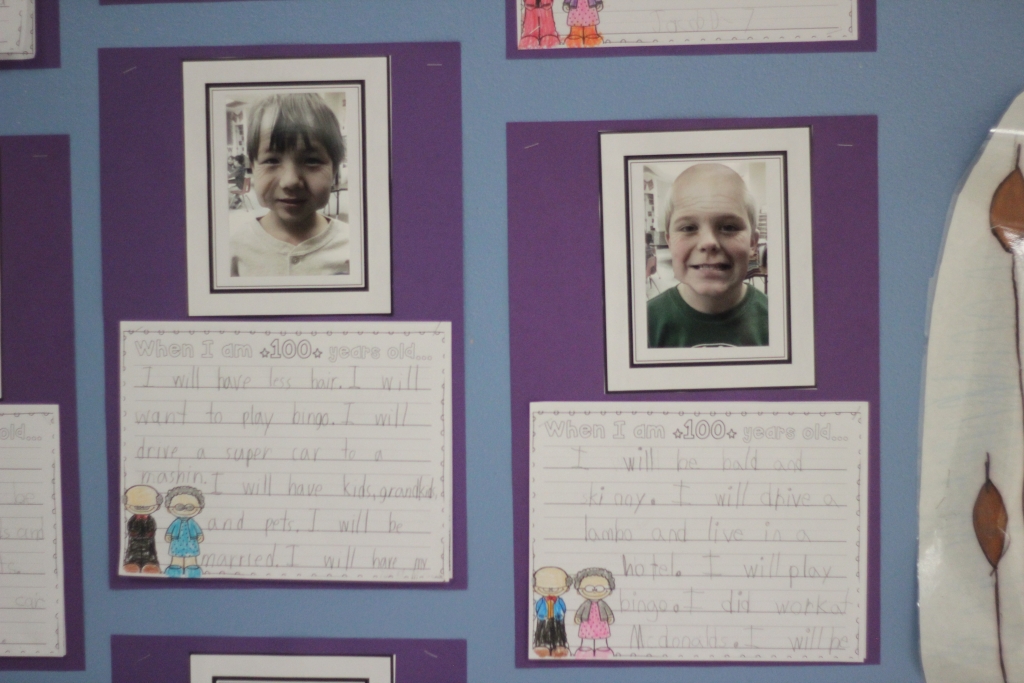 Jarrells 7
When I am 100 years old...
I will have less hair. I will
want to play bingo. I will
drive a super car to a
mashin. I will have kids, grandkids
and pets. I will be
married. I will have my
When I am 100 years old...
I will be bald and
skinny. I will drive a
lambo and live in a
hotel. I will play
bingo. I did workat
Mcdonalds. I will be
old...
be
s and
car